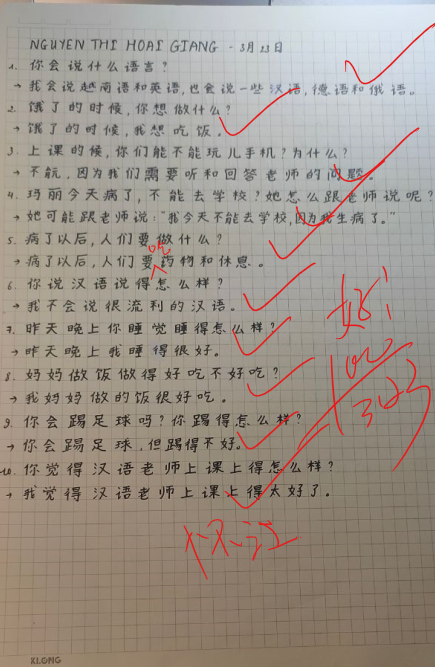 NGUYEN THI HOAI GIANG - 3月23日
1. 你会说什么语言?
→ 我会说越南语和英语,也会说一些汉语,德语和俄语。
2. 饿了的时候,你想做什么?
→ 饿了的时候,我想吃饭。
3. 上课的候,你们能不能玩儿手机?为什么?
→ 不能,因为我们需要听和回答老师的问题。
4. 玛丽今天病了,不能去学校?她怎么跟老师说呢?
→ 她可能跟老师说:"我今天不能去学校,因为我生病了。"
5. 病了以后,人们要做什么?
吃
→ 病了以后,人们要药物和休息。
6. 你说汉语说得怎么样?
→ 我不会说很流利的汉语。
7. 昨天晚上你睡觉睡得怎么样?
→ 昨天晚上我睡得很好。
好!
8. 妈妈做饭做得好吃不好吃?
→ 我妈妈做的饭很好吃。
100
9. 你会踢足球吗?你踢得怎么样?
→ 你会踢足球,但踢得不好。
10. 你觉得汉语老师上课上得怎么样?
→ 我觉得汉语老师上课上得太好了。
KLONG